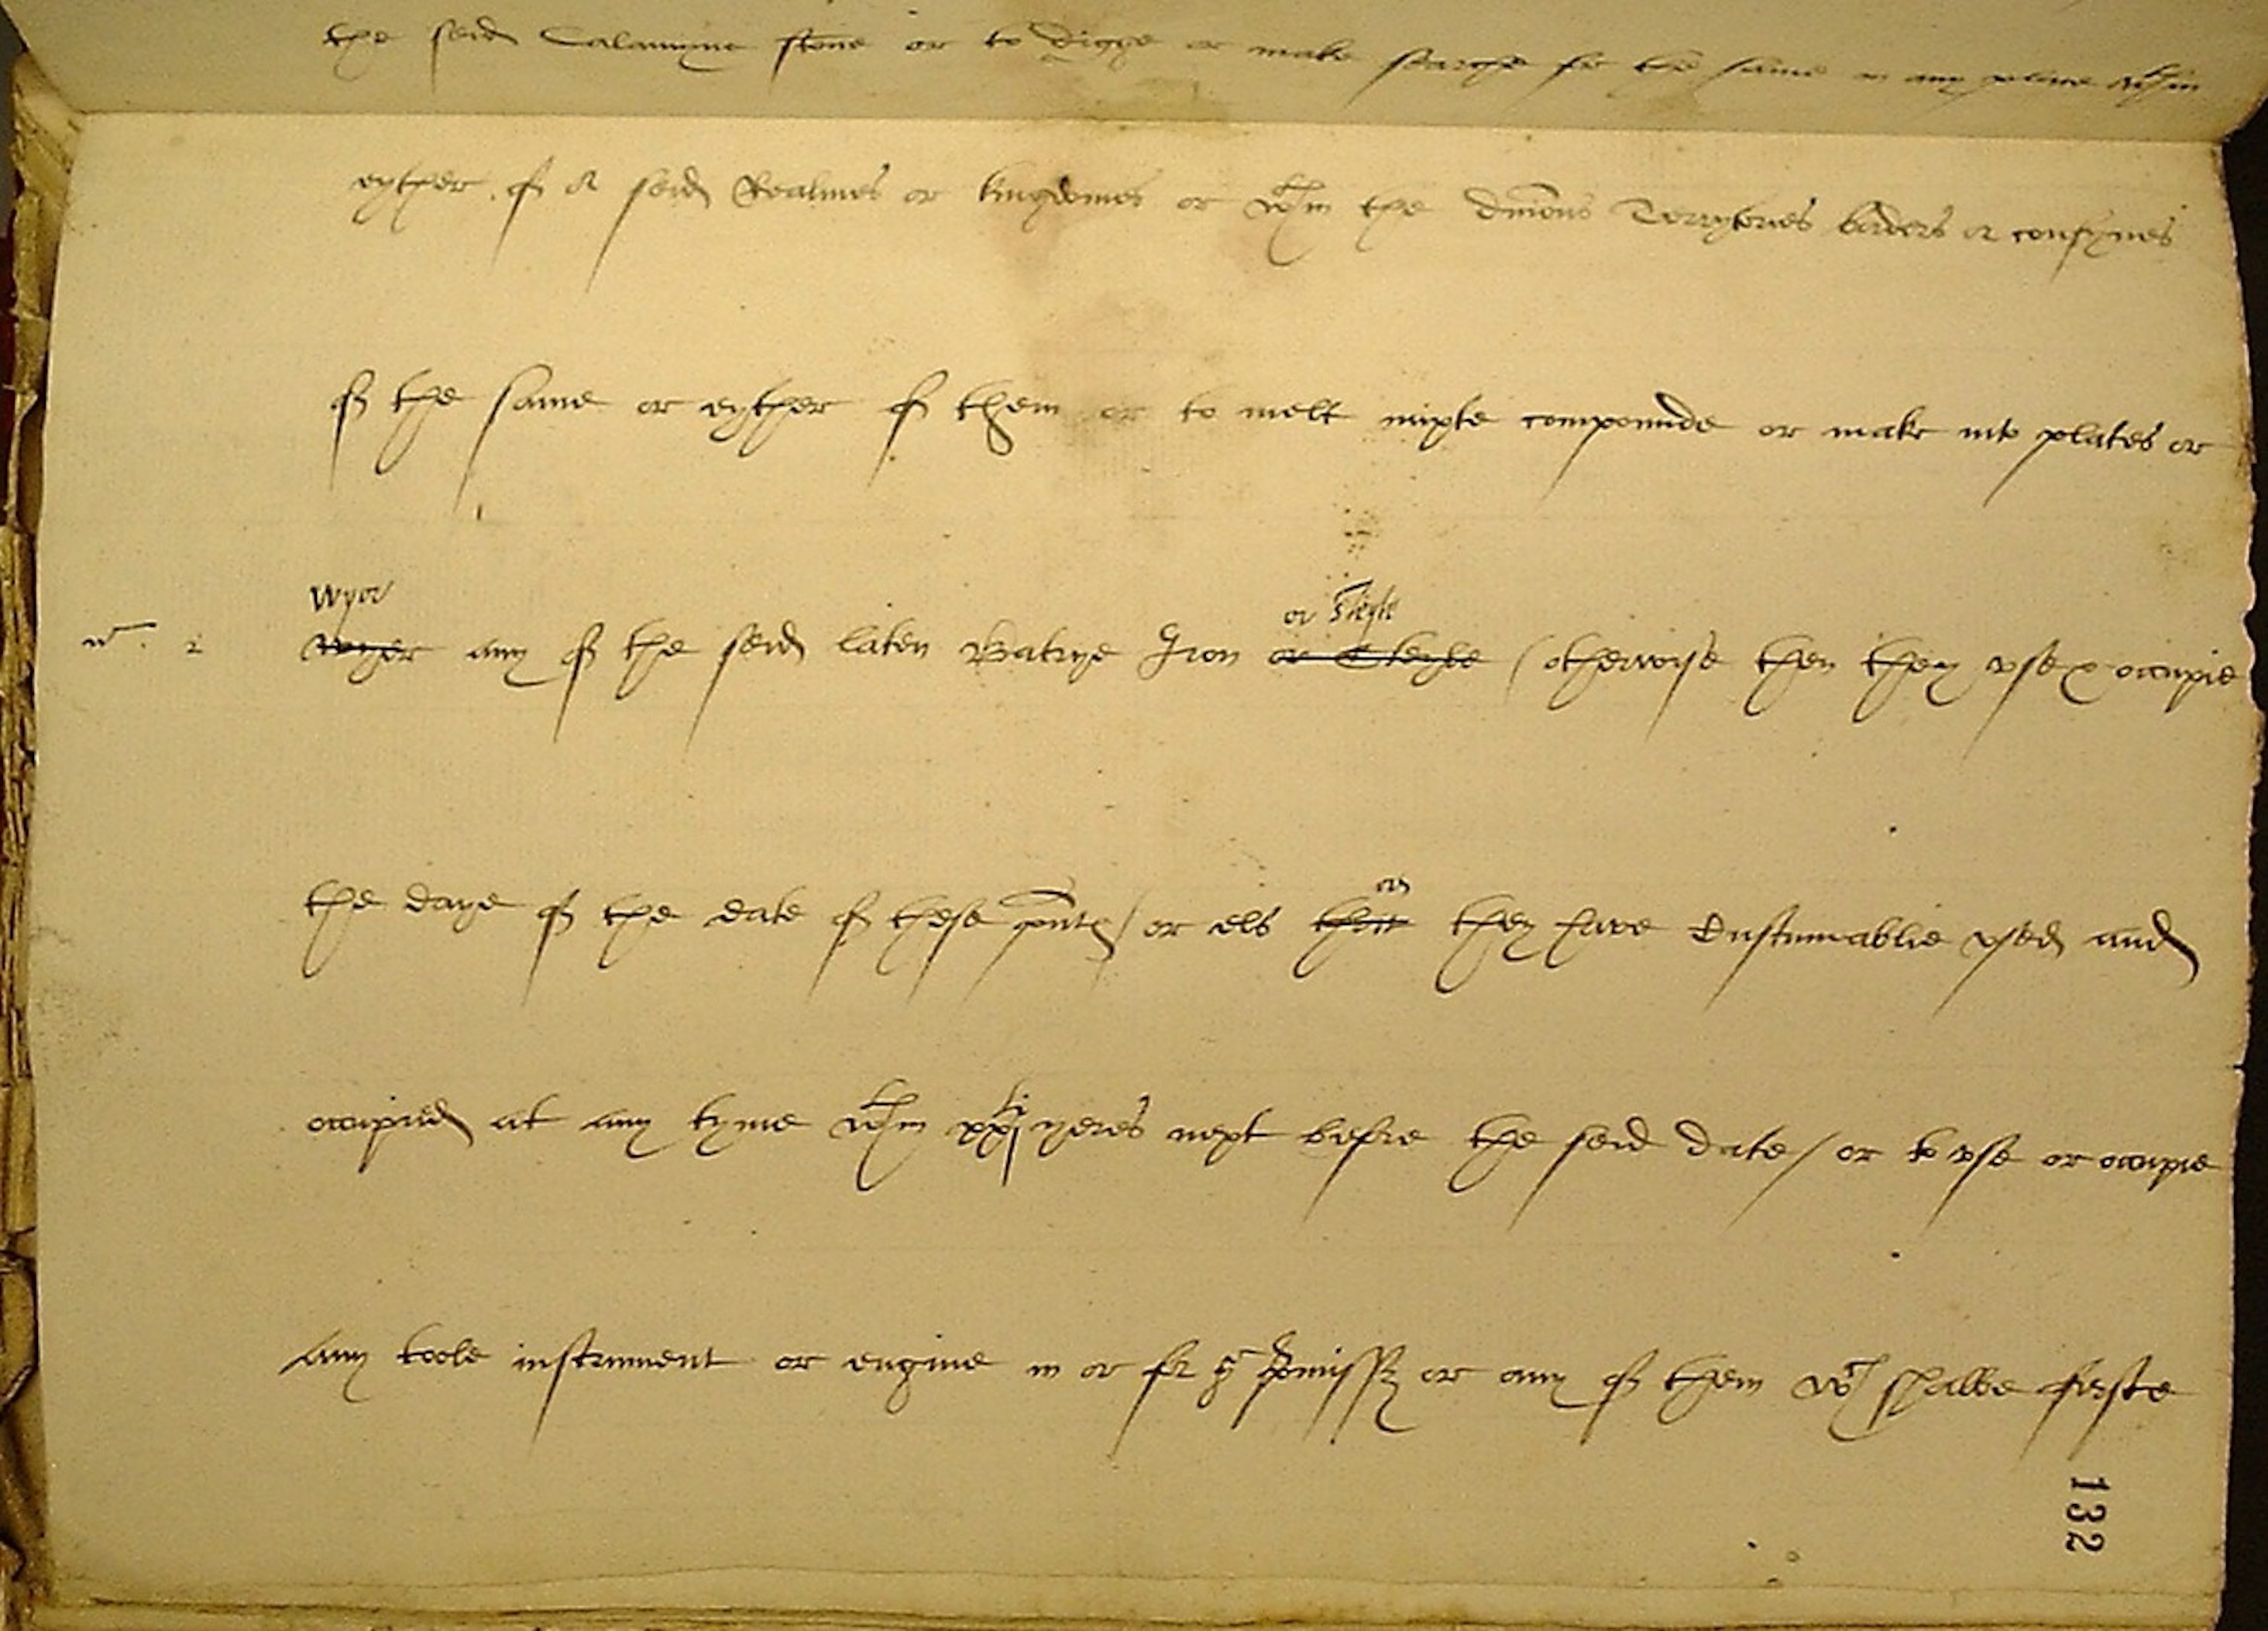 the seid Calamyne stone or to digge or make searche for the same in any place wthin
eyther of or seid Realmes or kingdomes or wthin the dmions Terrytories borders or confynes
of the same or eyther of them or to melt mixte compounde or make into plates or
Wyor or Steyle
wyer any of the seid laten Batrye Iron or Steyle (otherwise then they vse & occupie
on
the daye of the date of these pntes / or els that they have Custumablie vsed and
occupied at any tyme wthin xxti yeres next before the seid date / or to vse or occupie
any toole instrument or engine in or for ye pmisses or any of them wch shalbe firste
132